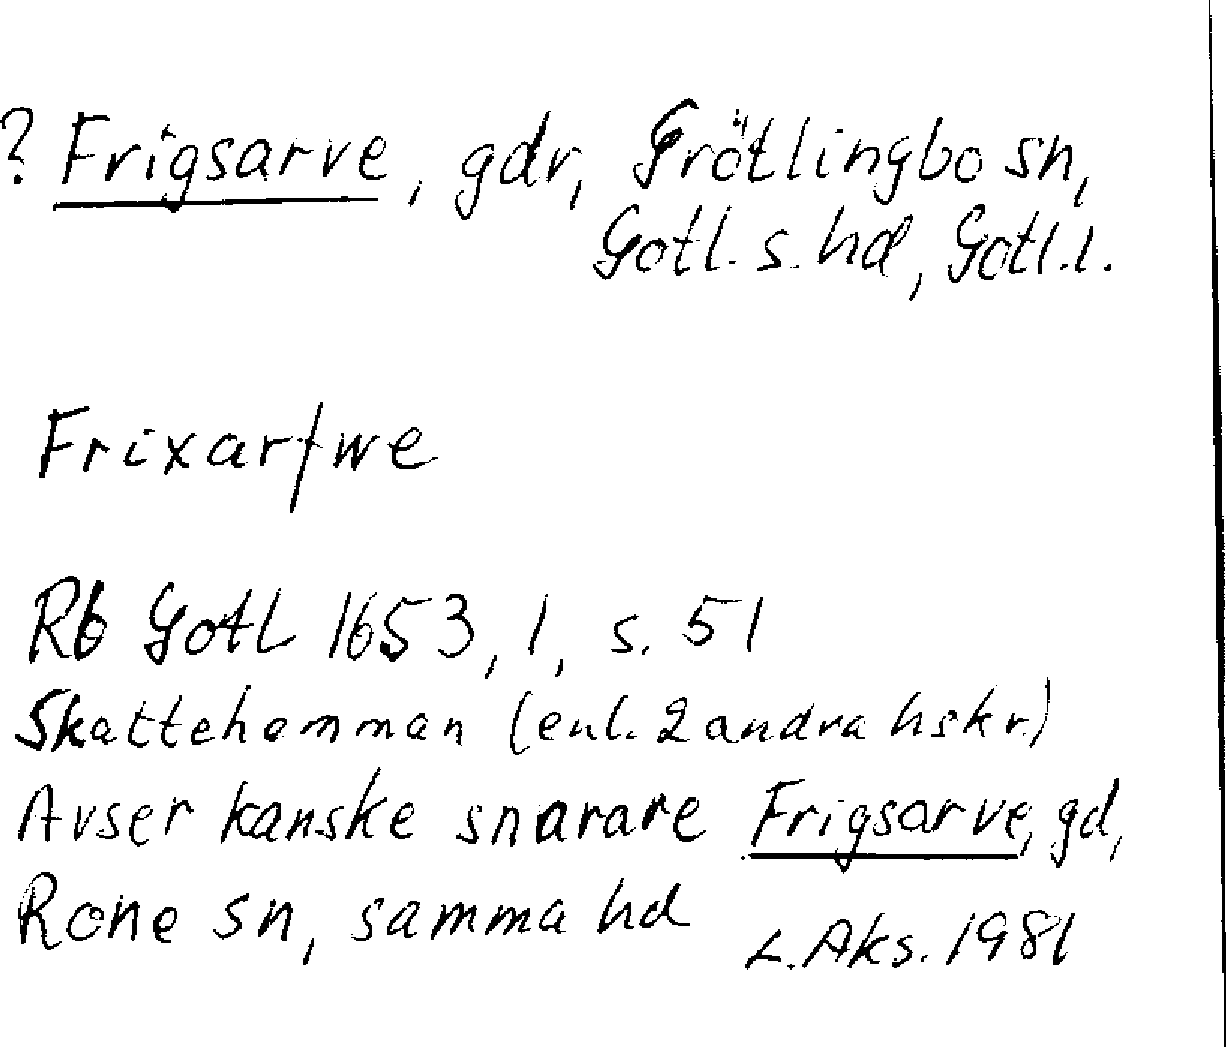 ? Frigsarve, gdr, Grötlingbo sn,
Gotl. s. hd, Gotl. l.
Frixarfwe
Rb Gotl 1653, 1, s. 51
Skattehemman (enl. 2 andra hskr.)
Avser kanske snarare Frigsarve, gd,
Rone sn, samma hd
L. Aks. 1981